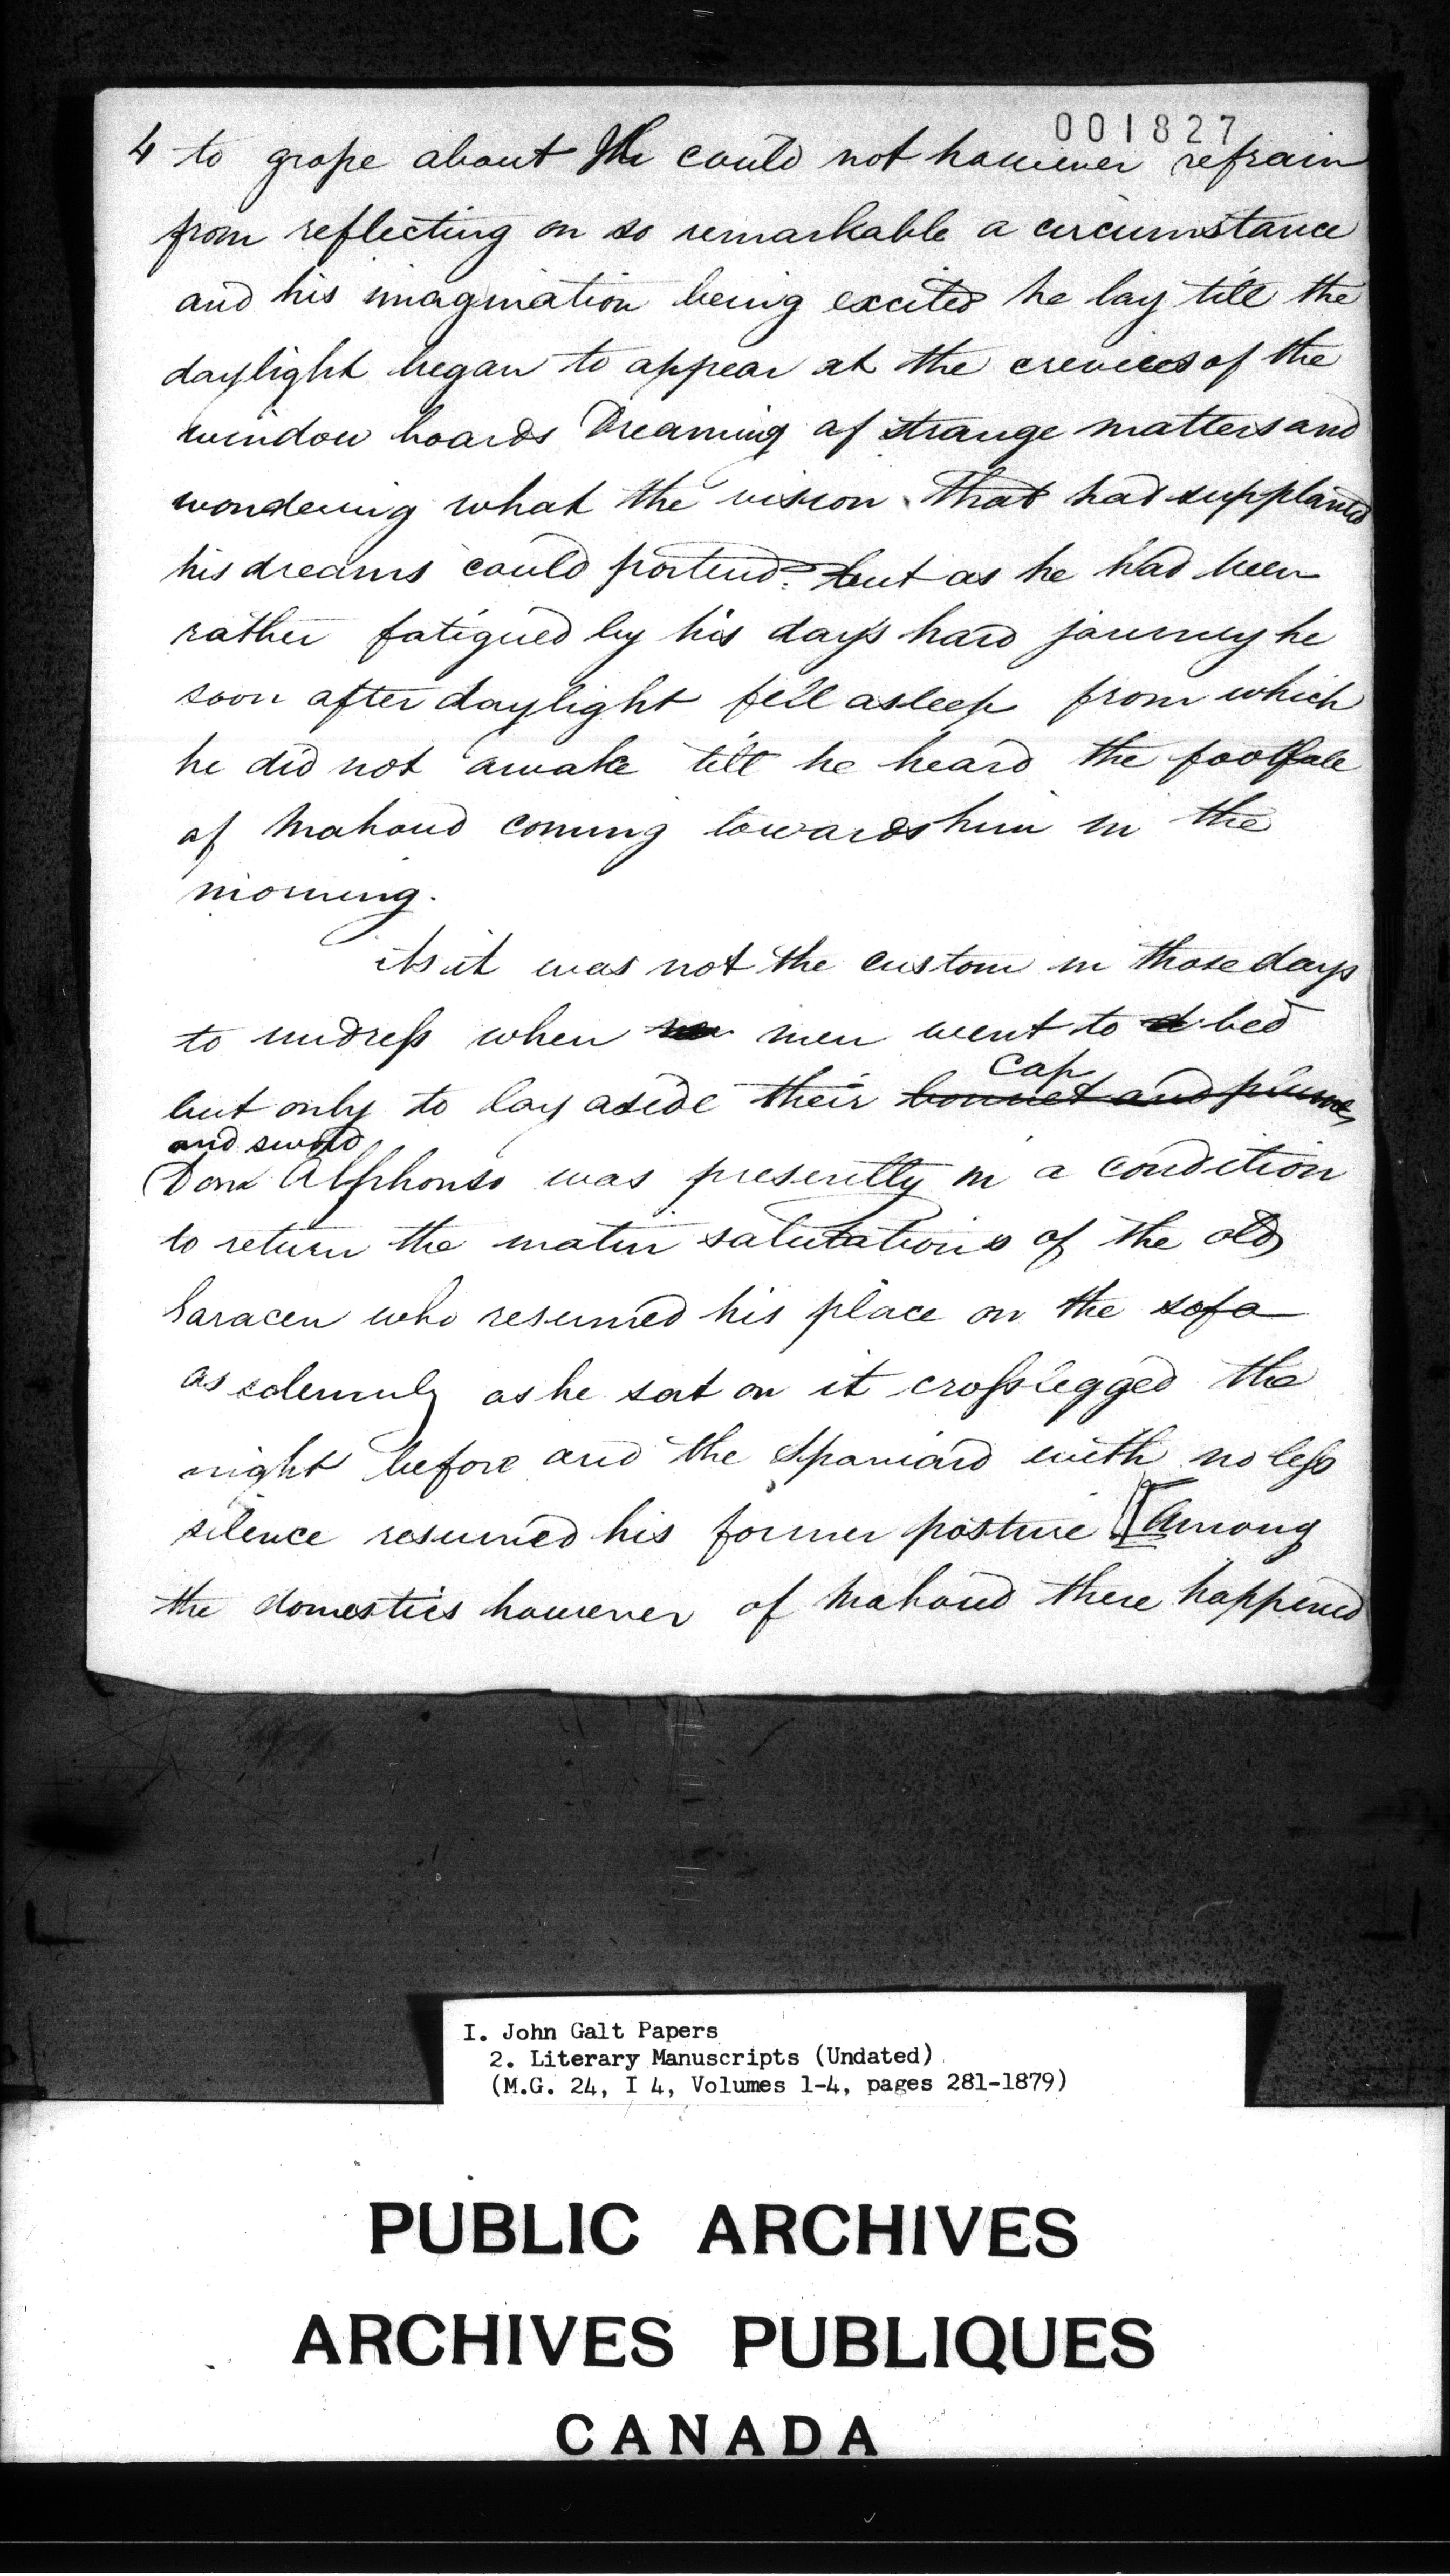 001827
4 to grope about He could not however refrain
from reflecting on so remarkable a circumstance
and his imagination being excited he lay till the
daylight began to appear at the crevices of the
window boards Dreaming of strange matters and
wondering what the vision that had supplanted
his dreams could portend. but as he had been
rather fatigued by his day's hard journey he
soon after daylight fell asleep from which
he did not awake till he heard the footfall
of Mahoud coming towards him in the
morning.
As it was not the custom in those days
to undress when men went to bed
cap
but only to lay aside their bonnet and plumes
and sword
Don Alphonso was presently in a condition
to return the matin salutations of the old
Saracen who resumed his place on the sofa
as solemnly as he sat on it crosslegged the
night before and the Spaniard with no less
silence resumed his former posture [Among
the domestics however of Mahoud there happened
I. John Galt Papers
2. Literary Manuscripts (Undated)
(M.G. 24, I 4, Volumes 1-4, pages 281-1879)
PUBLIC ARCHIVES
ARCHIVES PUBLIQUES
CANADA